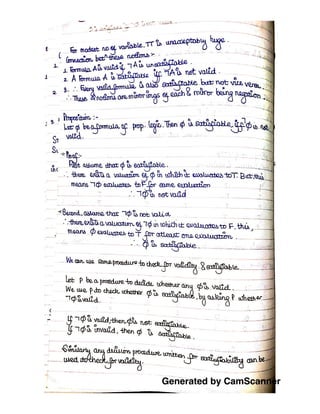 For modest no of variable, TT is unacceptably huge.
Conncxion bet these notions:-
1. Formula A is valid if ¬A is unsatisfiable.
2. A formula A is Satisfiable iff ¬A is not valid.
3. Every valid formula is also satisfiable but not vice versa.
∴ These notions are mirror images of each & mirror being negation.
Proposition :-
Let ϕ be a formula of prop. logic. Then ϕ is satisfiable, iff ¬ϕ is not
valid.
Proof:-
First assume that ϕ is satisfiable.
∴ there exists a valuation of ϕ in which it evaluates to T. But this
means ¬ϕ evaluates to F for some evaluation
∴ ¬ϕ is not valid
→ Second, assume that ¬ϕ is not valid
∴ there exists a valuation of ¬ϕ in which it evaluates to F, this,
means ϕ evaluates to T for atleast one evaluation.
∴ ϕ is satisfiable.
We can use same procedure to check for validity & satisfiable.
Let P be a procedure to decide whether any ϕ is valid.
We use P to check whether ϕ is satisfiable, by asking P whether
¬ϕ is valid.
If ¬ϕ is valid, then ϕ is not satisfiable
If ¬ϕ is invalid, then ϕ is satisfiable.
Similarly any decision procedure written for satisfiability can be
used to check for validity.
Generated by CamScanner